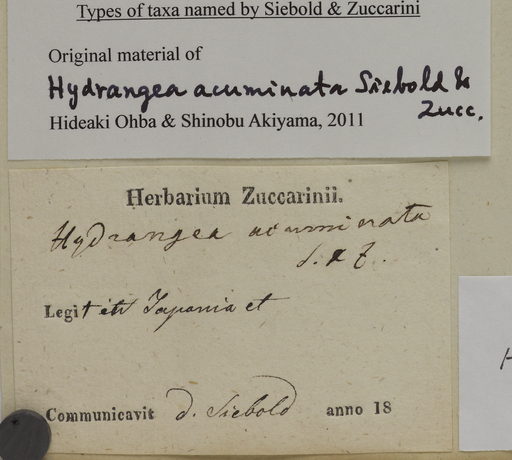 Types of taxa named by Siebold & Zuccarini
Original material of
Hydrangea acuminata Siebold &
Zucc.
Hideaki Ohba & Shinobu Akiyama, 2011
Herbarium Zuccarinii.
Hydrangea acuminata
S. & Z.
Legit in Japonia et
Communicavit d. Siebold anno 18
H